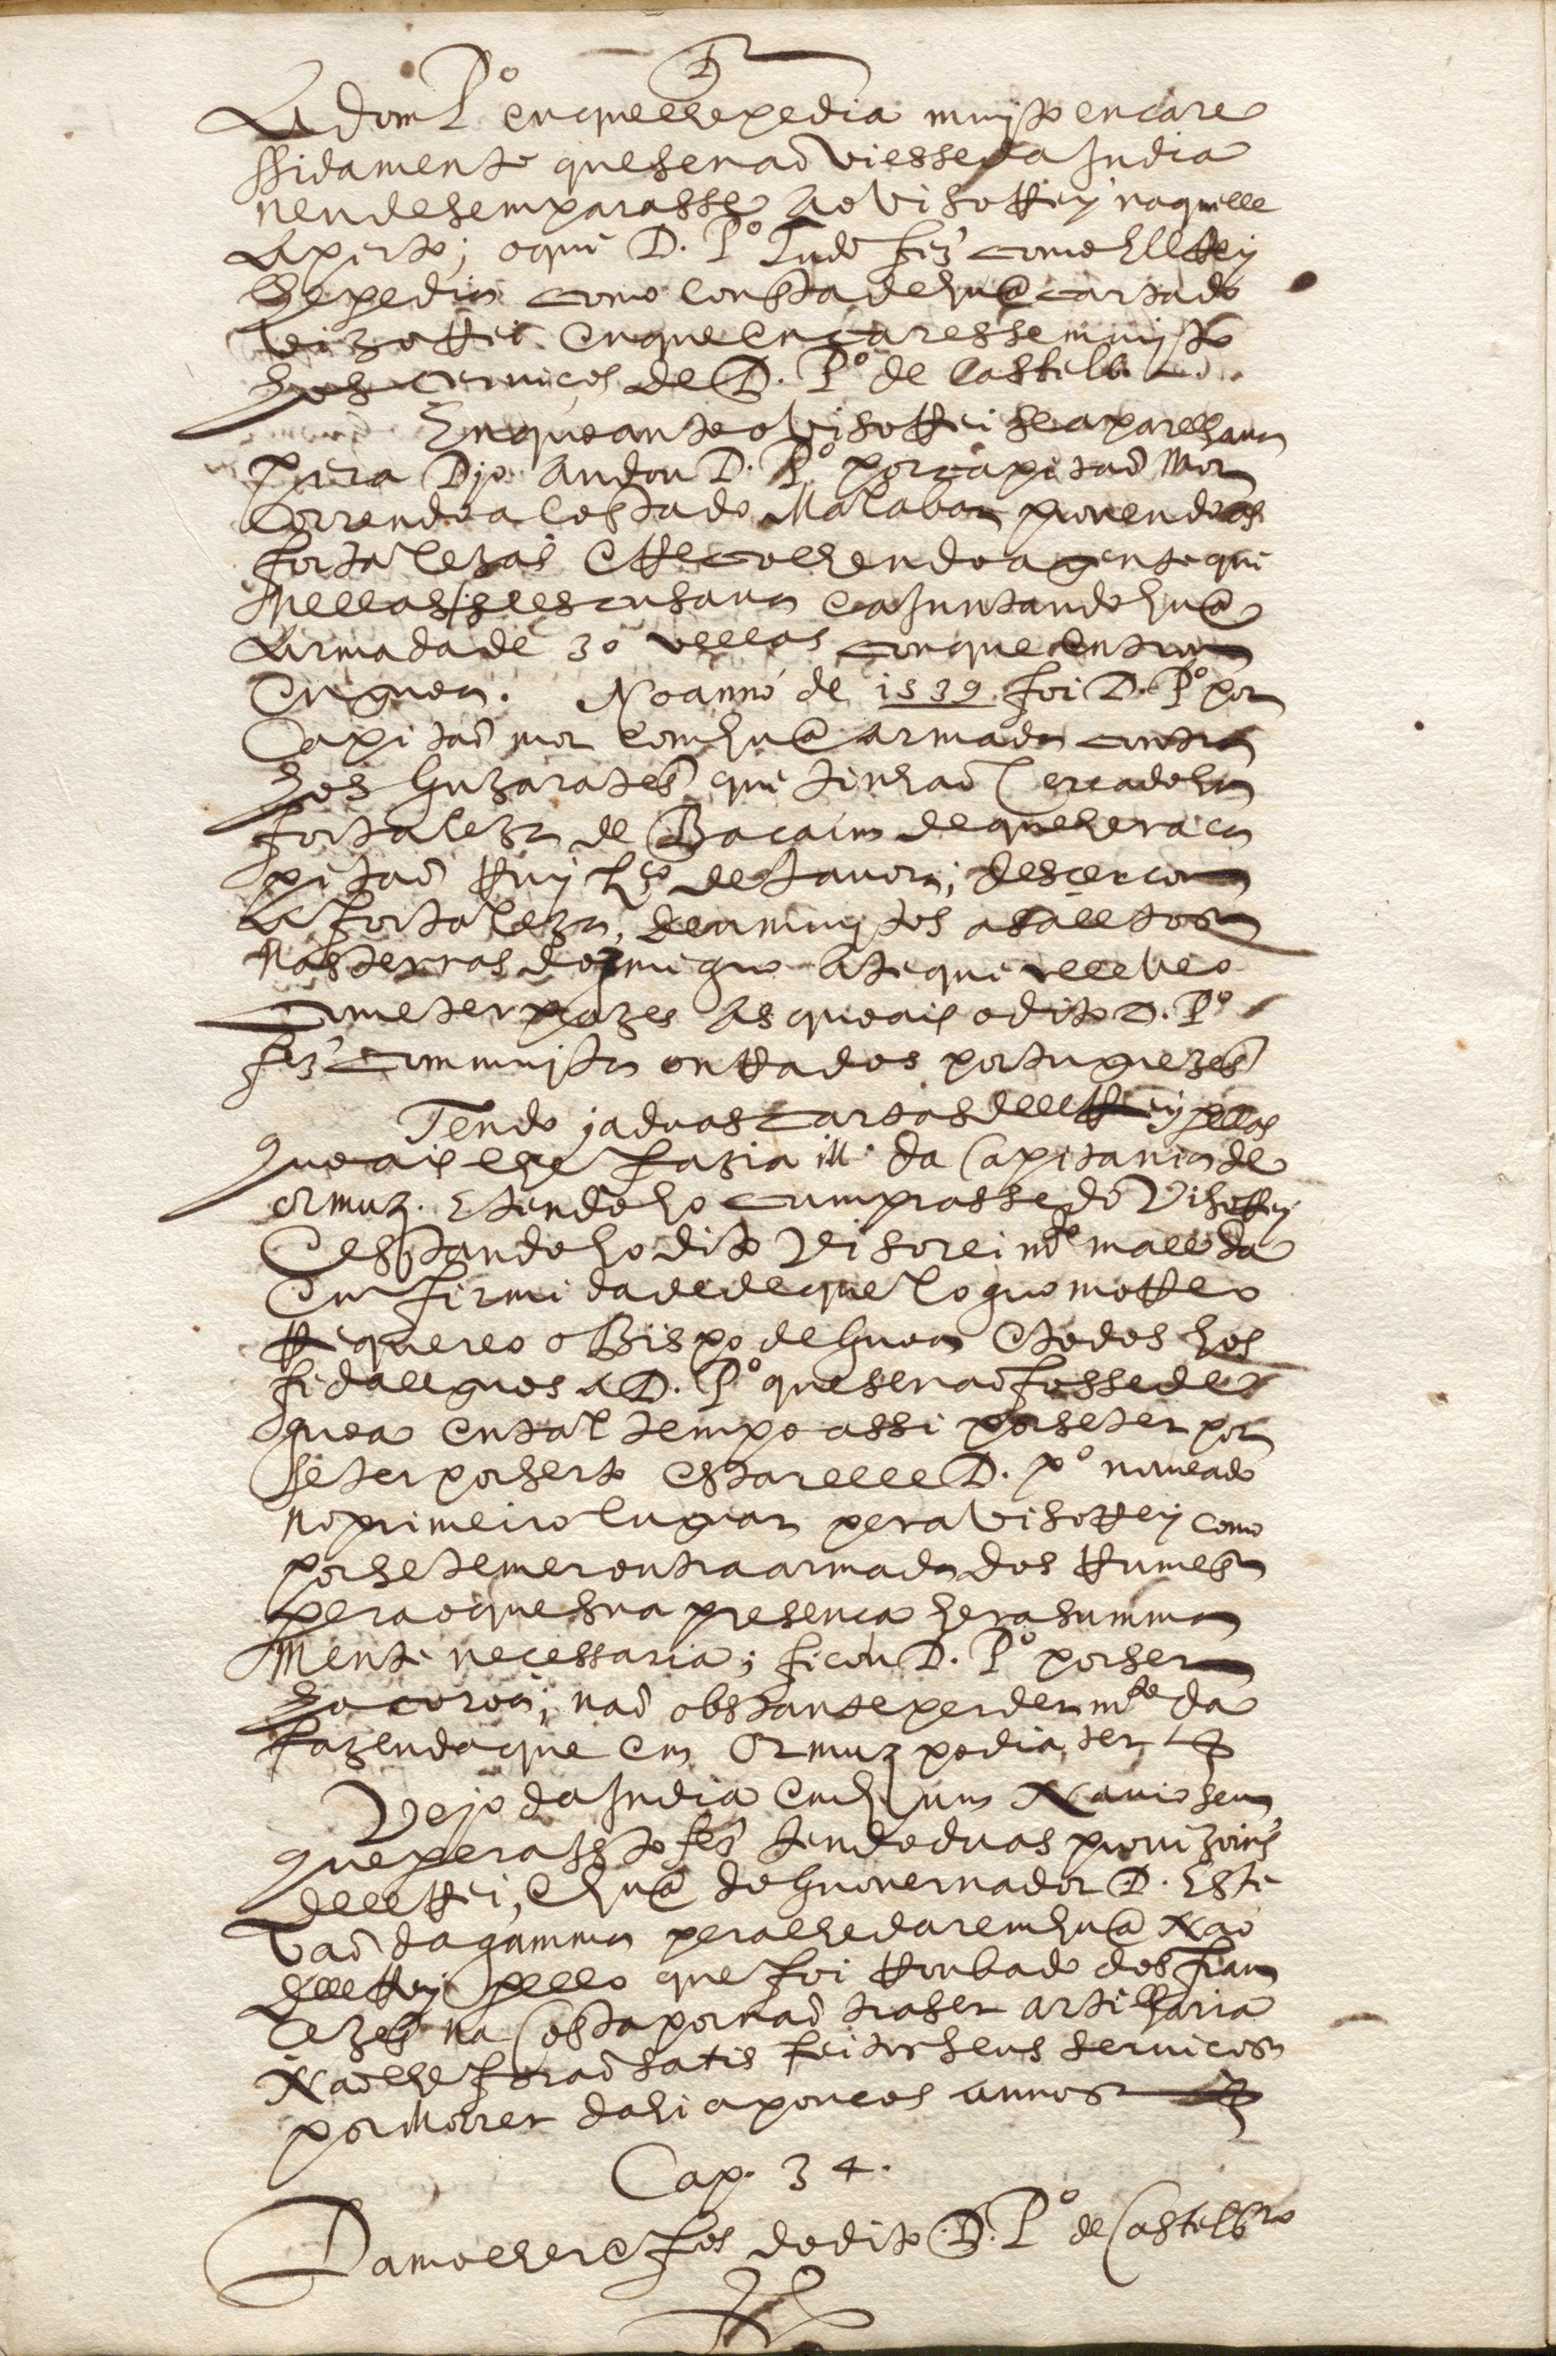 A dom P.º en que lhe pedia muyto encare
ssidamente que se naõ viesse da India
nen desemparasse Ao Viso Rey naquelle
Aperto; o que D. P.º tudo fez como ElRey
lhe pedia como consta de hu@ carta do
Vizo Rei en que encaresse muyto
hos cerviços de D. P.º de Castelbr.
Enqueanto o Viso Rei se aparelhava
pera Dio andou D. P.º por capitaõ Mor
Correndo a Costa do Malabar provendo as
fortalezas e Recolhendo a gente que
nellas se escusava e ajuntando hu@
Armada de 30 vellas con que entrou
en guoa. No anno de 1539. foi D. P.º por
Capitaõ mor com hu@ armada contra
hos Guzarates que tinhaõ cercado ha
fortaleza de Bacaim de que hera ca
pitaõ Ruy Lço de Tavora; descercou
A fortaleza, deu muytos asaltos
nas terras do imiguo Ate que elle veo
cometer pazes As queais o dito D. P.º
fez com muyta onRa dos portuguezes
Tendo ja duas cartas delRey pellas
queais lhe fazia m. da Capitania de
ormuz. E tendo ho cumprasse do Viso Rey
E estando ho dito Visorei m.to mal da
enfirmidade de que loguo moRreo
Requereo o Bispo de Guoa e todos hos
fidalguos a D. P.º que se naõ fosse de
guoa en tal tempo assi por se ter por
se ter por serto estar elle D. P.º nomeado
no primeiro luguar pera Viso Rey como
por se temer outra armada dos Rumes
pera o que sua presença hera summa
mente necessaria; ficou D. P.º por ser
ho coroa; naõ obstante perder m.ta da
fazenda que em Ormuz podia ter
Vejo da India em hum Navio seu
que pera isto fes tendo duas provizois
delRei, e hu@ do Guovernador D. Este
vaõ da gamma pera lhe darem hu@ Nao
delRey pello que foi Roubado dos Fran
cezes na Costa por naõ traser artilharia
Naõ lhe foraõ satis feitos seus serviços
por Morrer dahi a poucos annos
Cap. 34.
Da molher e fos do dito D. P.º de Castelbrº